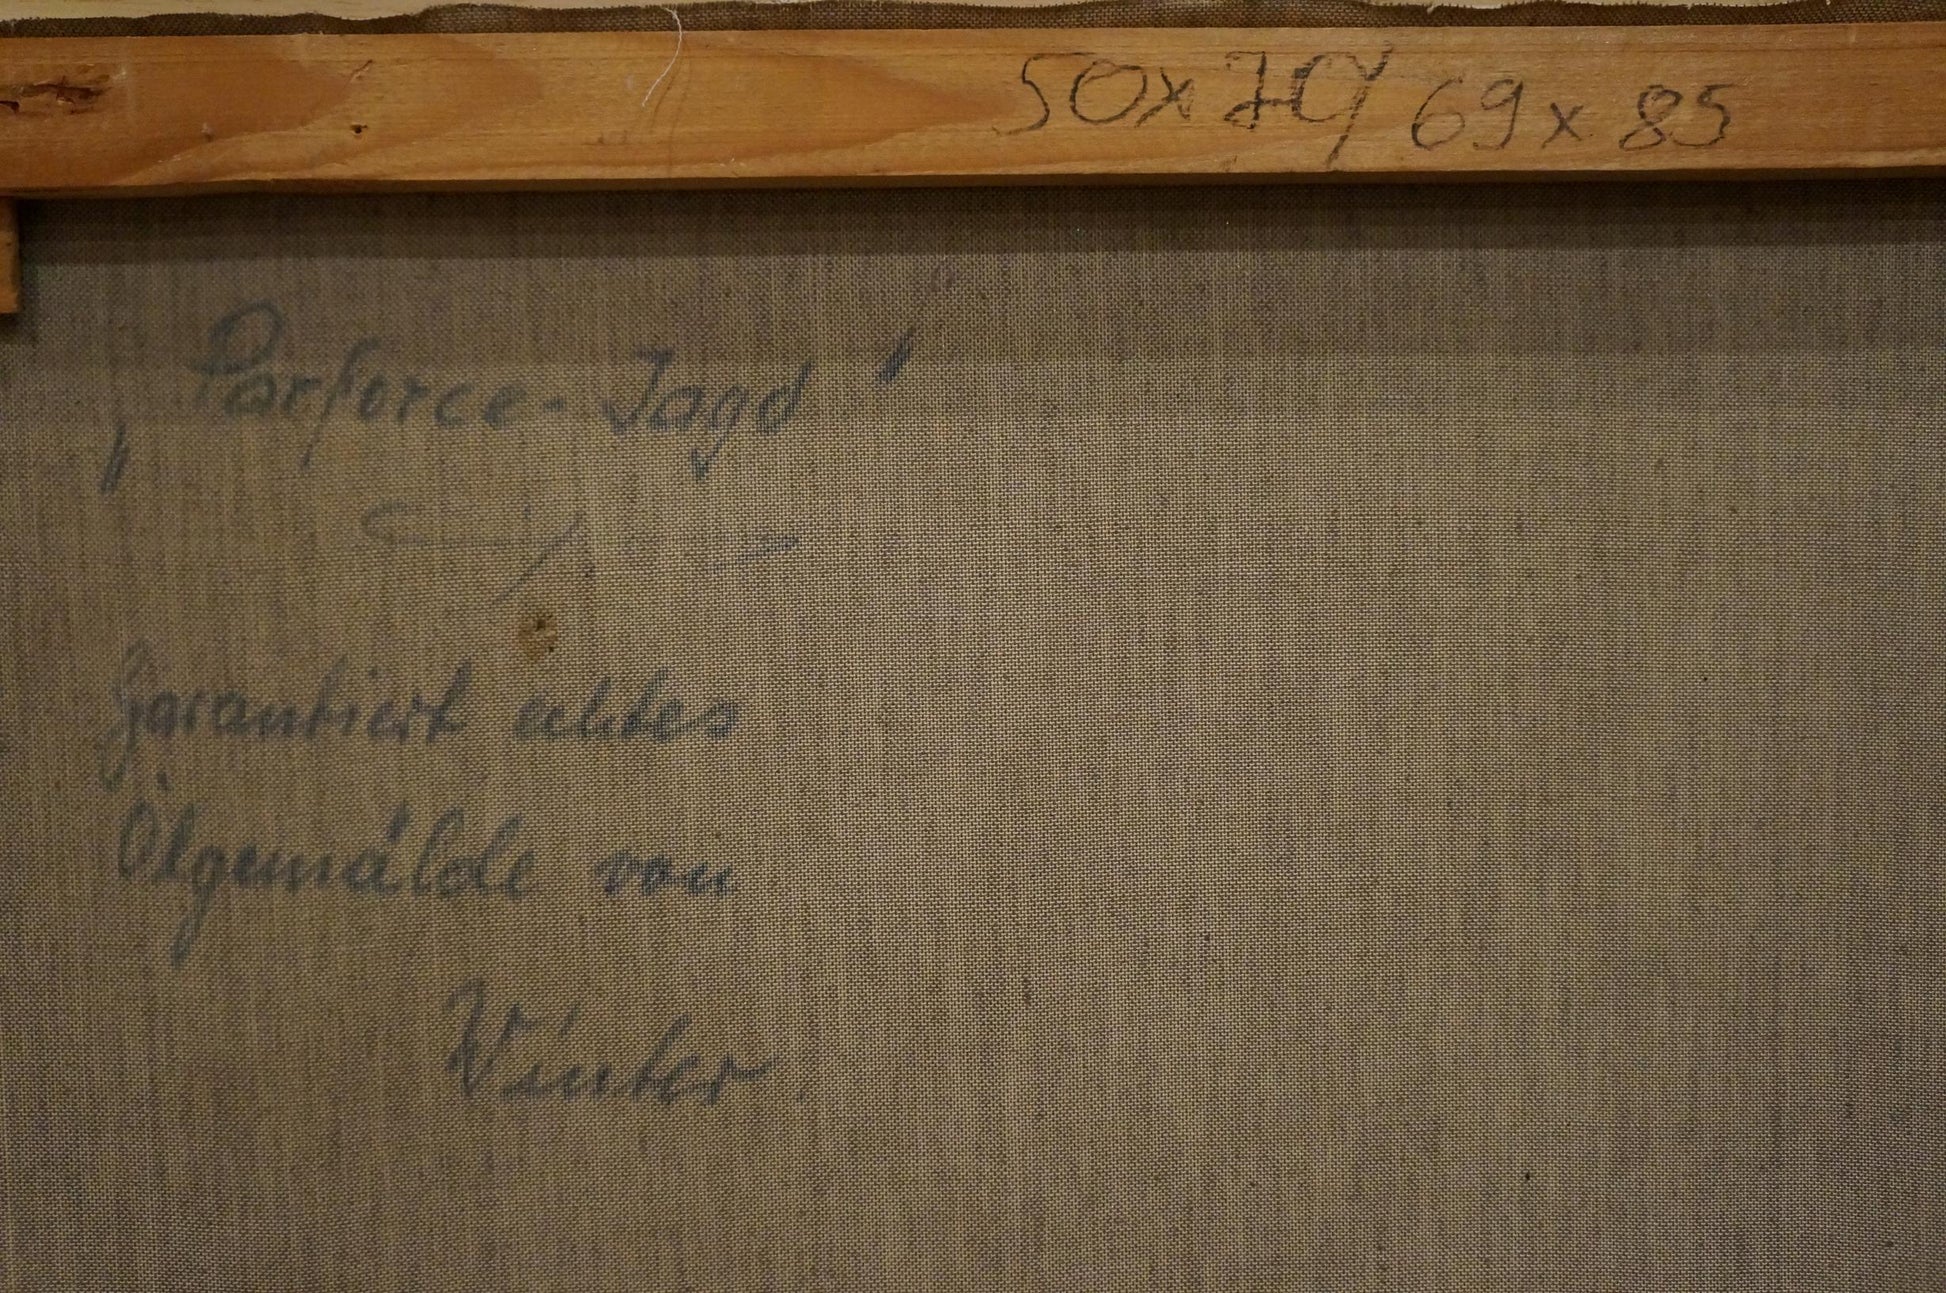 50x70/ 69 x 85
„Parforce-Jagd"
Garantiert echtes
Ölgemälde von
Winter